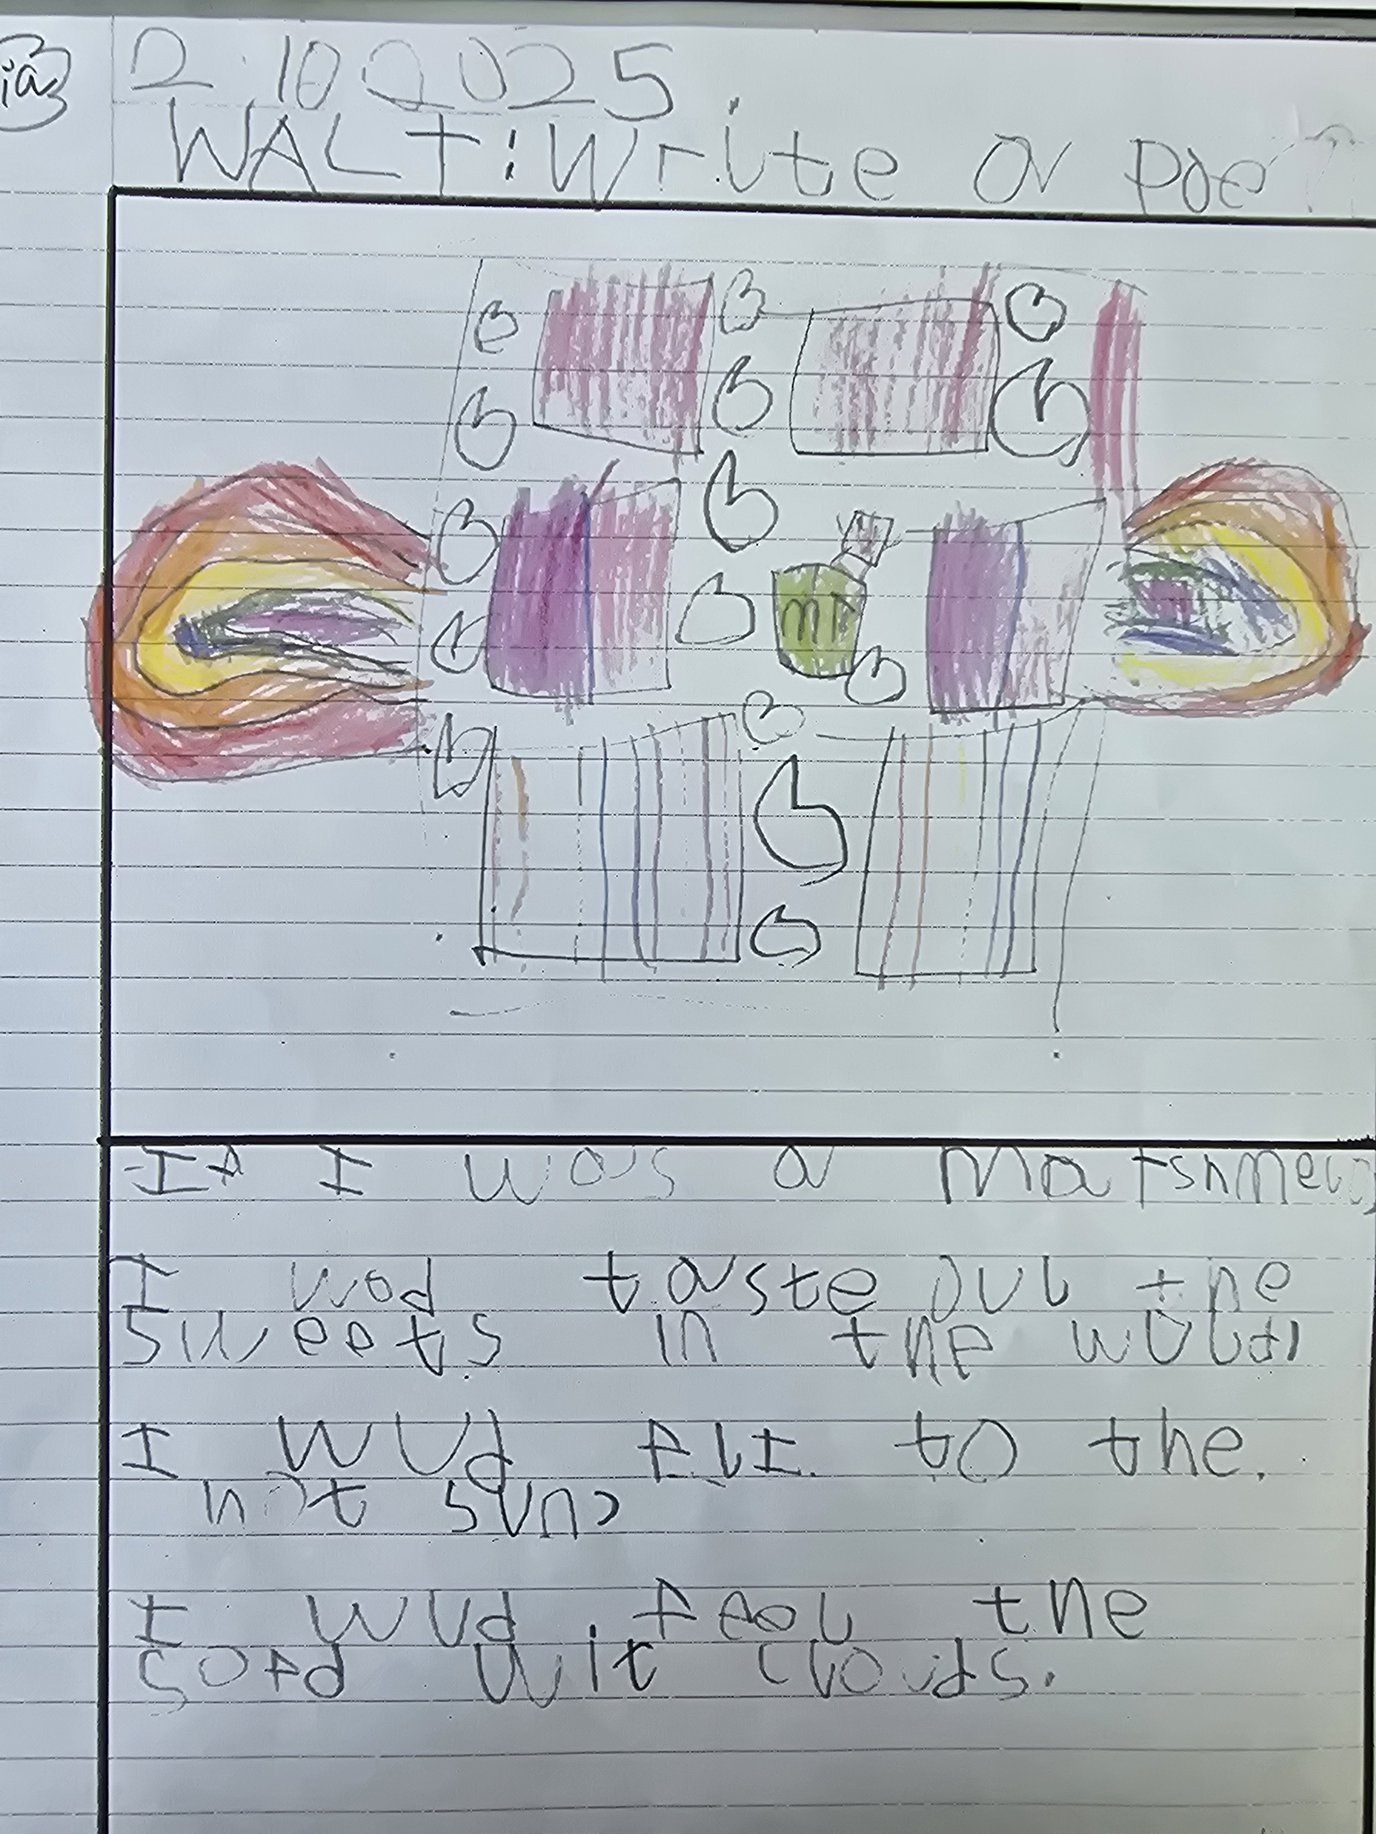 ia
2.10 2025.
WALT: Write a poe
If I was a
I wod taste oul the
sweets in the
I wud fli to the.
hot sun
I wud feel the
sofd wit clouds.